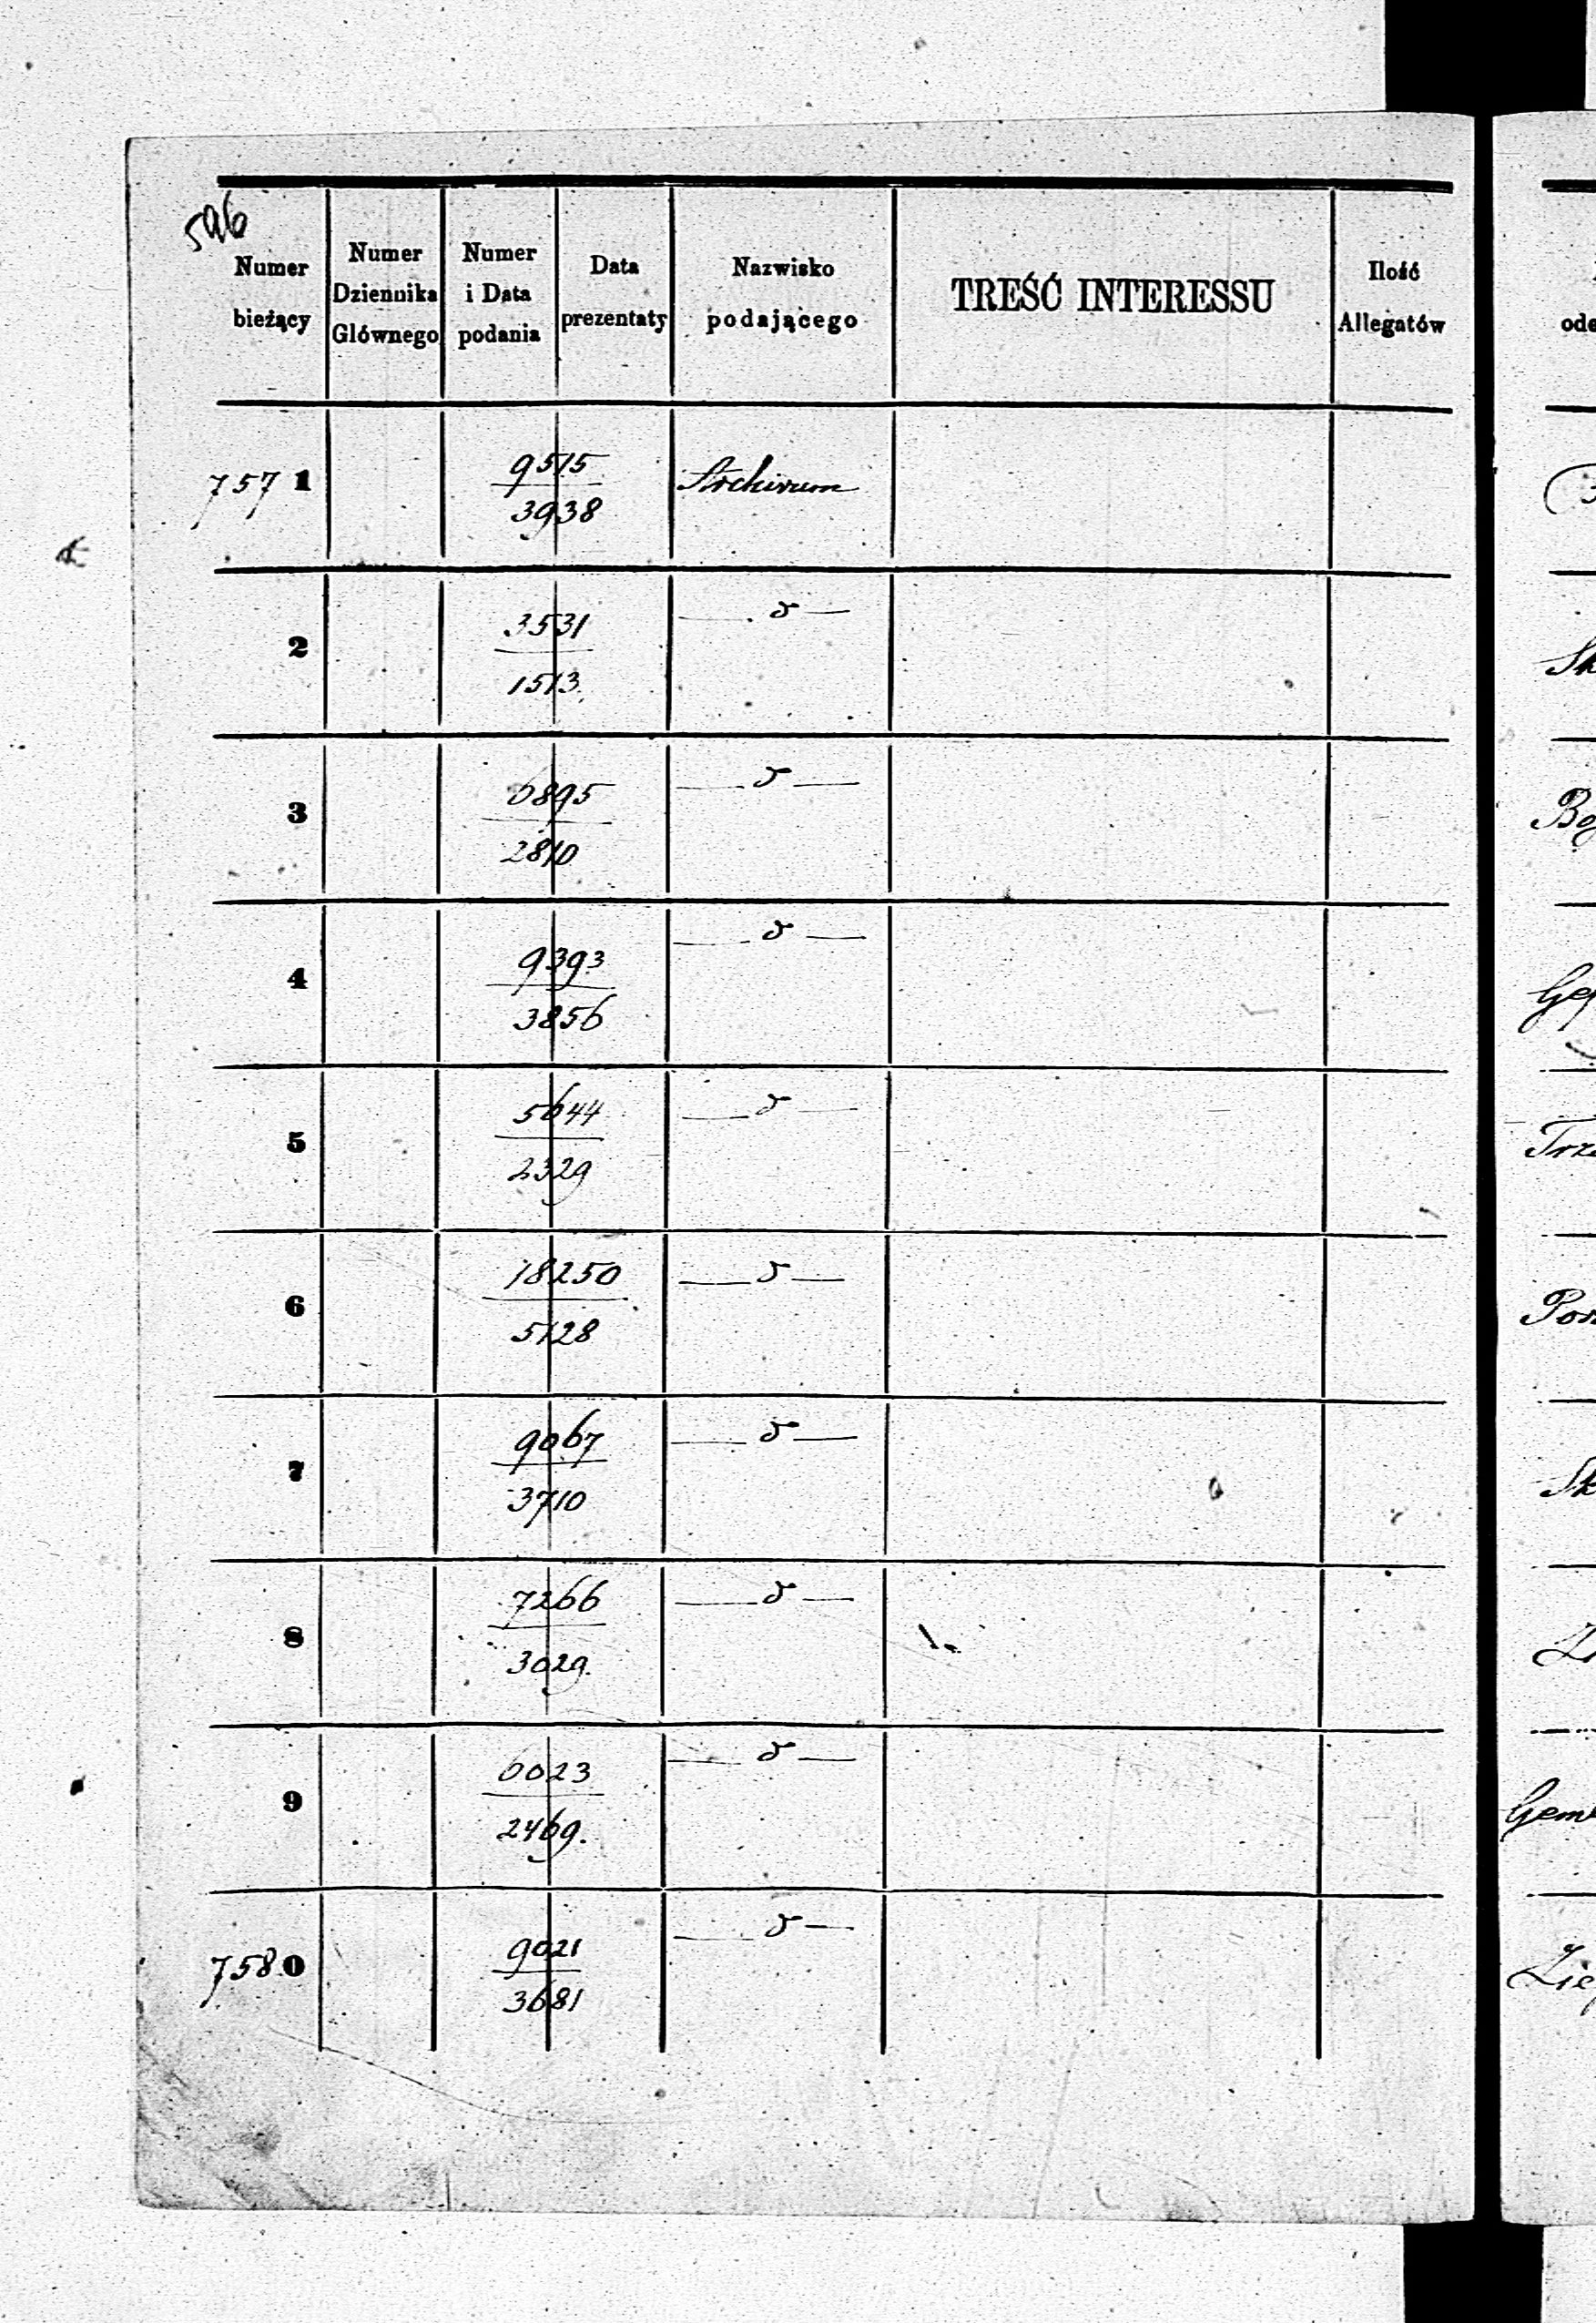 596
Numer bieżący
Numer Dziennika Głównego
Numer i Data podania
Data prezentaty
Nazwisko podającego
TREŚĆ INTERESSU
Ilość Allegatów
ode
7571 9515 Archivum
3938
2 3531 — d —
1513
Sk
3 6895 — d —
2810
Bog
4 9393 — d —
3856
5 5644 — d —
2329
Trz
6 18250 — d —
5128
Pon
7 9067 — d —
3710
Sk
8 7266 — d —
3029.
9 6023 — d —
2469.
Gem
7580 9021 — d —
3681